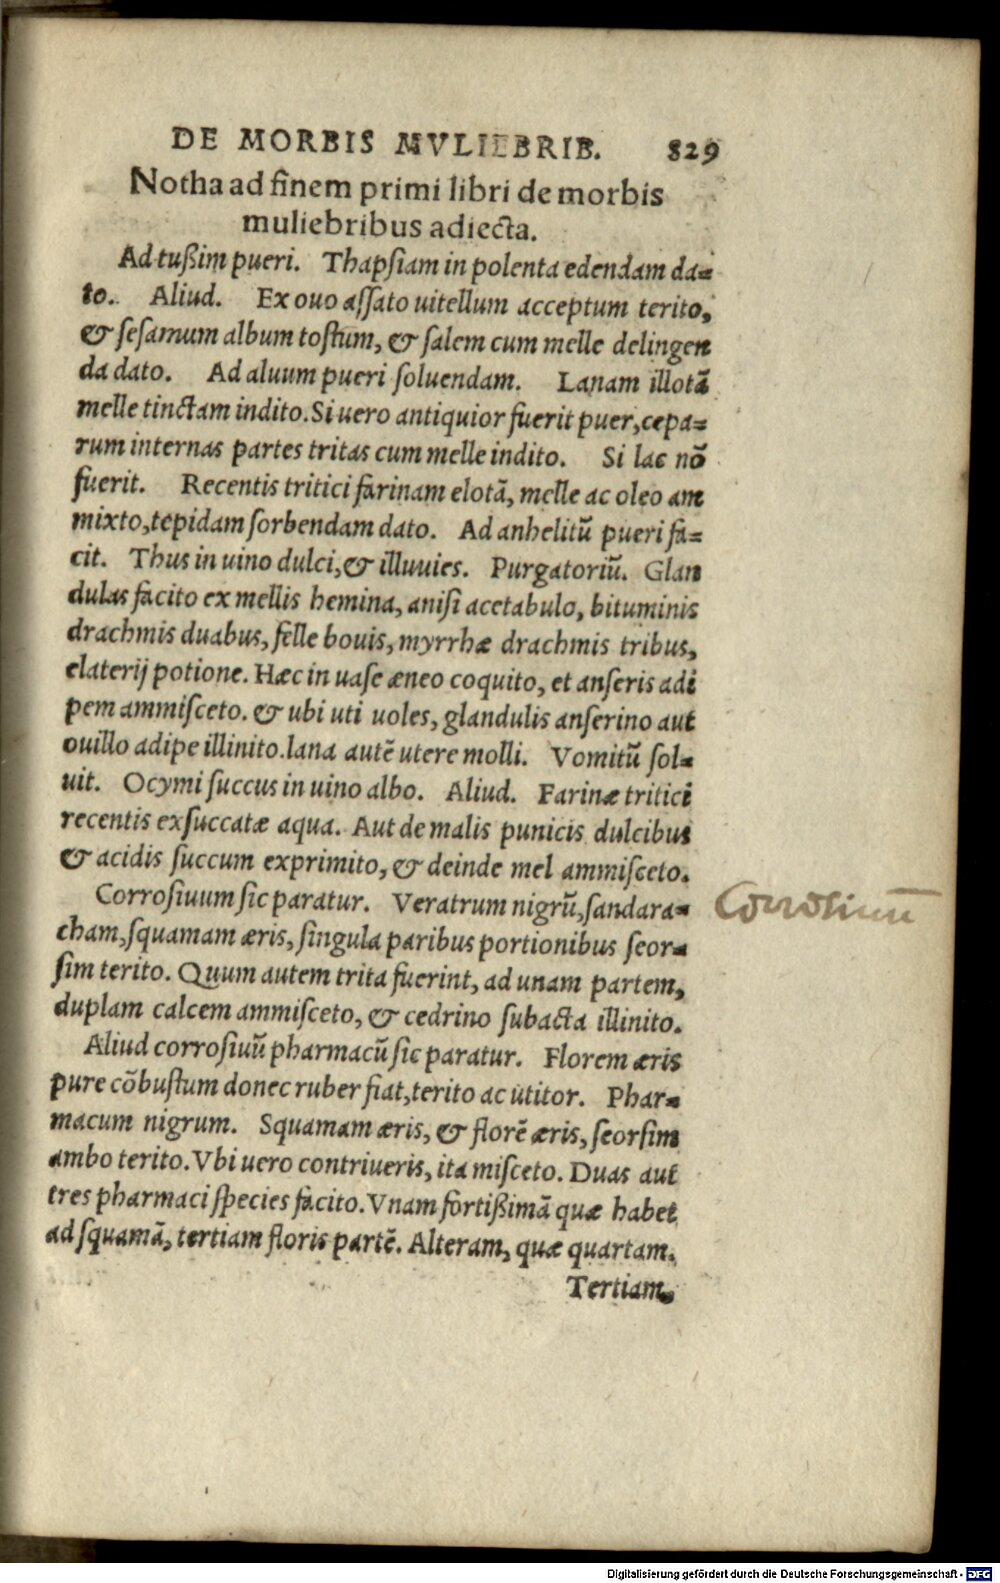 DE MORBIS MVLIEBRIB. 829
Notha ad finem primi libri de morbis
muliebribus adiecta.
Ad tußim pueri. Thapsiam in polenta edendam da=
to. Aliud. Ex ouo assato uitellum acceptum terito,
& sesamum album tostum, & salem cum melle delingen
da dato. Ad aluum pueri soluendam. Lanam illotā
melle tinctam indito. Si uero antiquior fuerit puer, cepa=
rum internas partes tritas cum melle indito. Si lac nō
fuerit. Recentis tritici farinam elotā, melle ac oleo am
mixto, tepidam sorbendam dato. Ad anhelitū pueri fa=
cit. Thus in uino dulci, & illuuies. Purgatoriū. Glan
dulas facito ex mellis hemina, anisi acetabulo, bituminis
drachmis duabus, felle bouis, myrrhæ drachmis tribus,
elaterij potione. Hæc in uase æneo coquito, et anseris adi
pem ammisceto. & ubi uti uoles, glandulis anserino aut
ouillo adipe illinito. lana autē utere molli. Vomitū sol=
uit. Ocymi succus in uino albo. Aliud. Farinæ tritici
recentis exsuccatæ aqua. Aut de malis punicis dulcibus
& acidis succum exprimito, & deinde mel ammisceto.
Corrosiuum sic paratur. Veratrum nigrū, sandara= Corrosiuū
cham, squamam æris, singula paribus portionibus seor=
sim terito. Quum autem trita fuerint, ad unam partem,
duplam calcem ammisceto, & cedrino subacta illinito.
Aliud corrosiuū pharmacū sic paratur. Florem æris
pure cōbustum donec ruber fiat, terito ac utitor. Phar=
macum nigrum. Squamam æris, & florē æris, seorsim
ambo terito. Vbi uero contriueris, ita misceto. Duas aut
tres pharmaci species facito. Vnam fortißimā quæ habet
ad squamā, tertiam floris partē. Alteram, quæ quartam.
Tertiam,
Digitalisierung gefördert durch die Deutsche Forschungsgemeinschaft - DFG